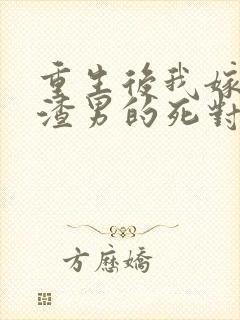 重生後我嫁
渣男的死對
方應嬌